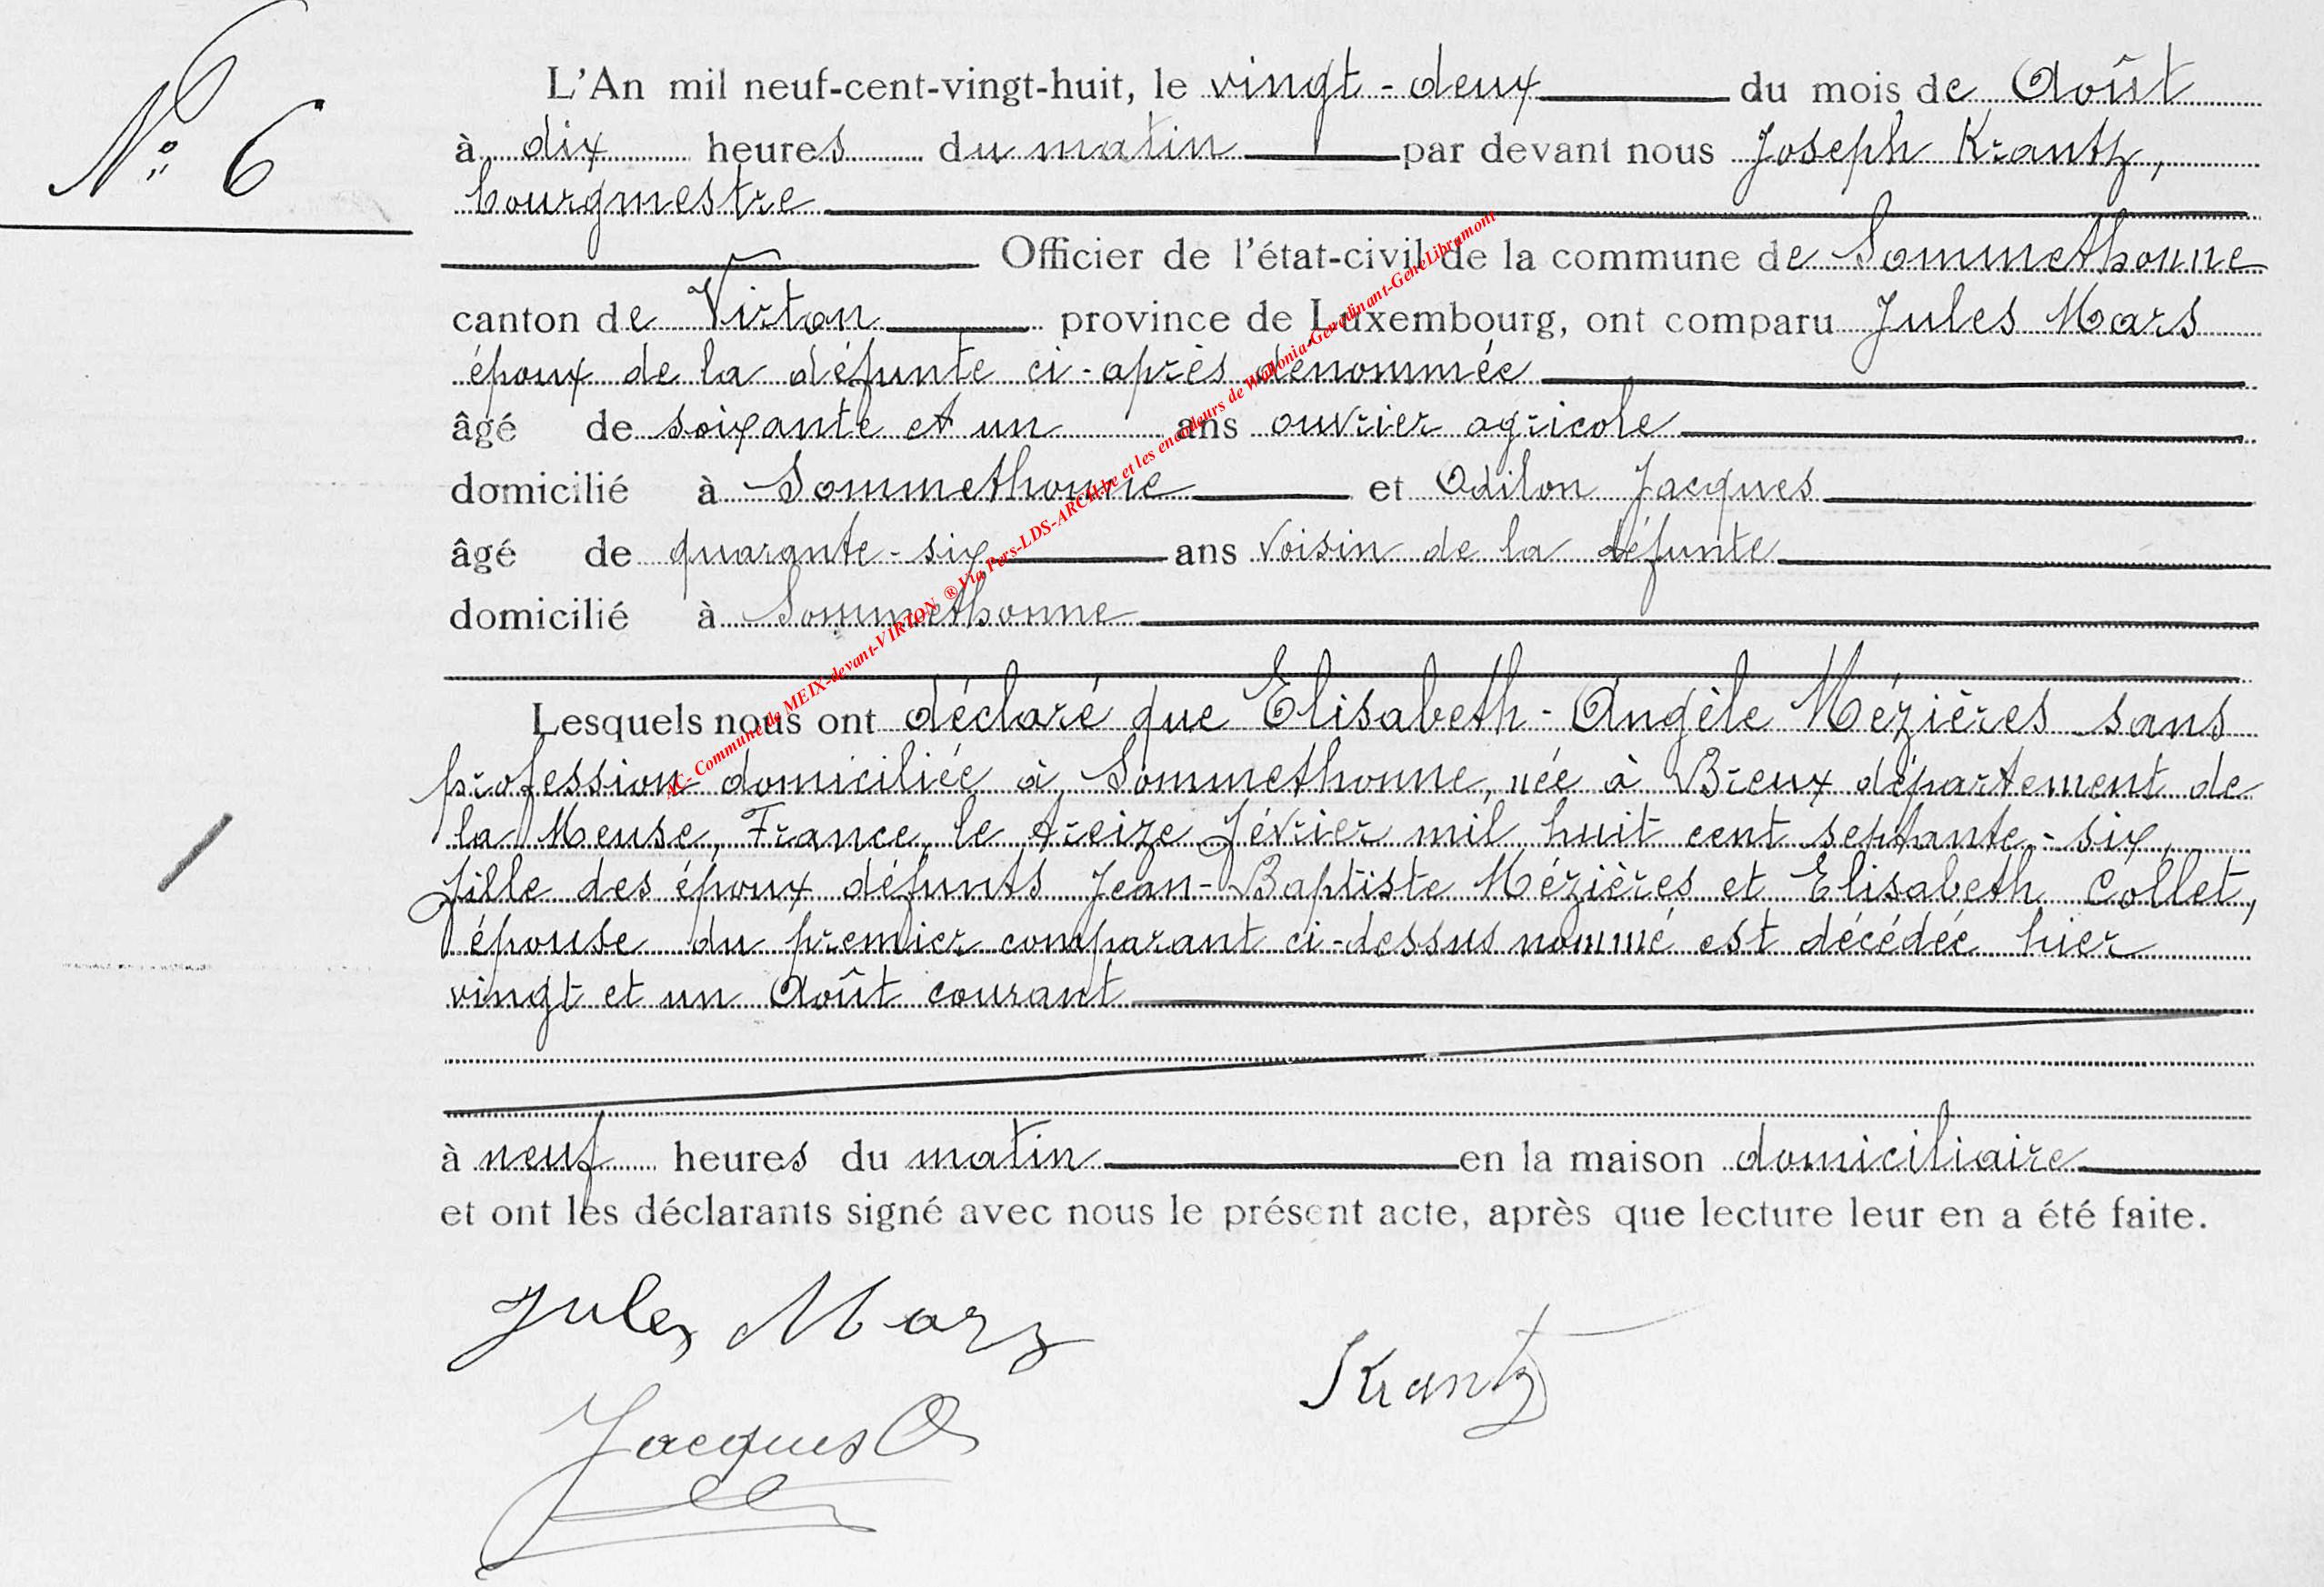 N° 6
L'An mil neuf-cent-vingt-huit, le vingt-deux du mois de Août
à dix heures du matin par devant nous Joseph Krantz,
bourgmestre
Officier de l'état-civil de la commune de Sommethonne
canton de Virton province de Luxembourg, ont comparu Jules Mars
époux de la défunte ci-après dénommée
âgé de soixante et un ans ouvrier agricole
domicilié à Sommethonne et Odilon Jacques
âgé de quarante-six ans voisin de la défunte
domicilié à Sommethonne
Lesquels nous ont déclaré que Elisabeth-Angèle Mézières sans
profession domiciliée à Sommethonne, née à Breux département de
la Meuse, France, le treize février mil huit cent septante-six,
fille des époux défunts Jean-Baptiste Mézières et Elisabeth Collet,
épouse du premier comparant ci-dessus nommé est décédée hier
vingt et un Août courant
à neuf heures du matin en la maison domiciliaire
et ont les déclarants signé avec nous le présent acte, après que lecture leur en a été faite.
Jules Mars
Krantz
Jacques O
AC- Commune de MEIX-devant-VIRTON ® Via Pers-LDS-ARCH.be et les encodeurs de Wallonia-Genedinant-GeneLibramont